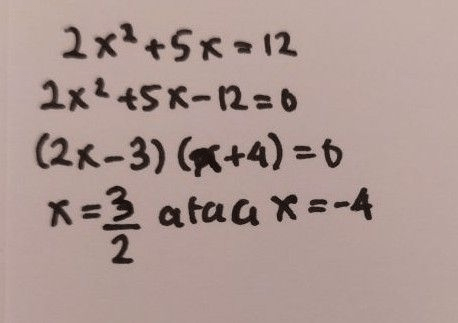 2x²+5x=12
2x²+5x-12=0
(2x-3)(x+4)=0
x=3/2 atau x=-4